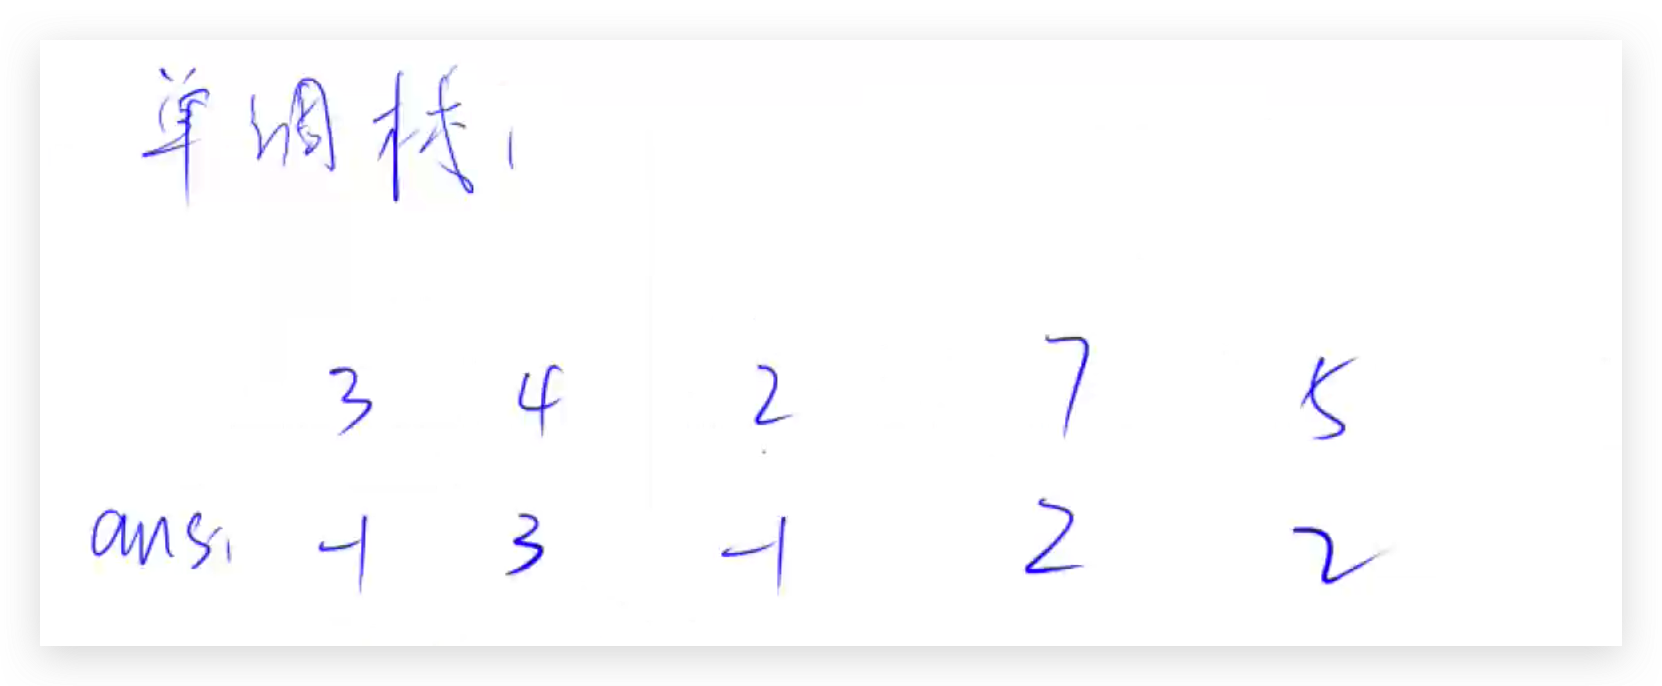 单调栈:
3 4 2 7 5
ans: -1 3 -1 2 2